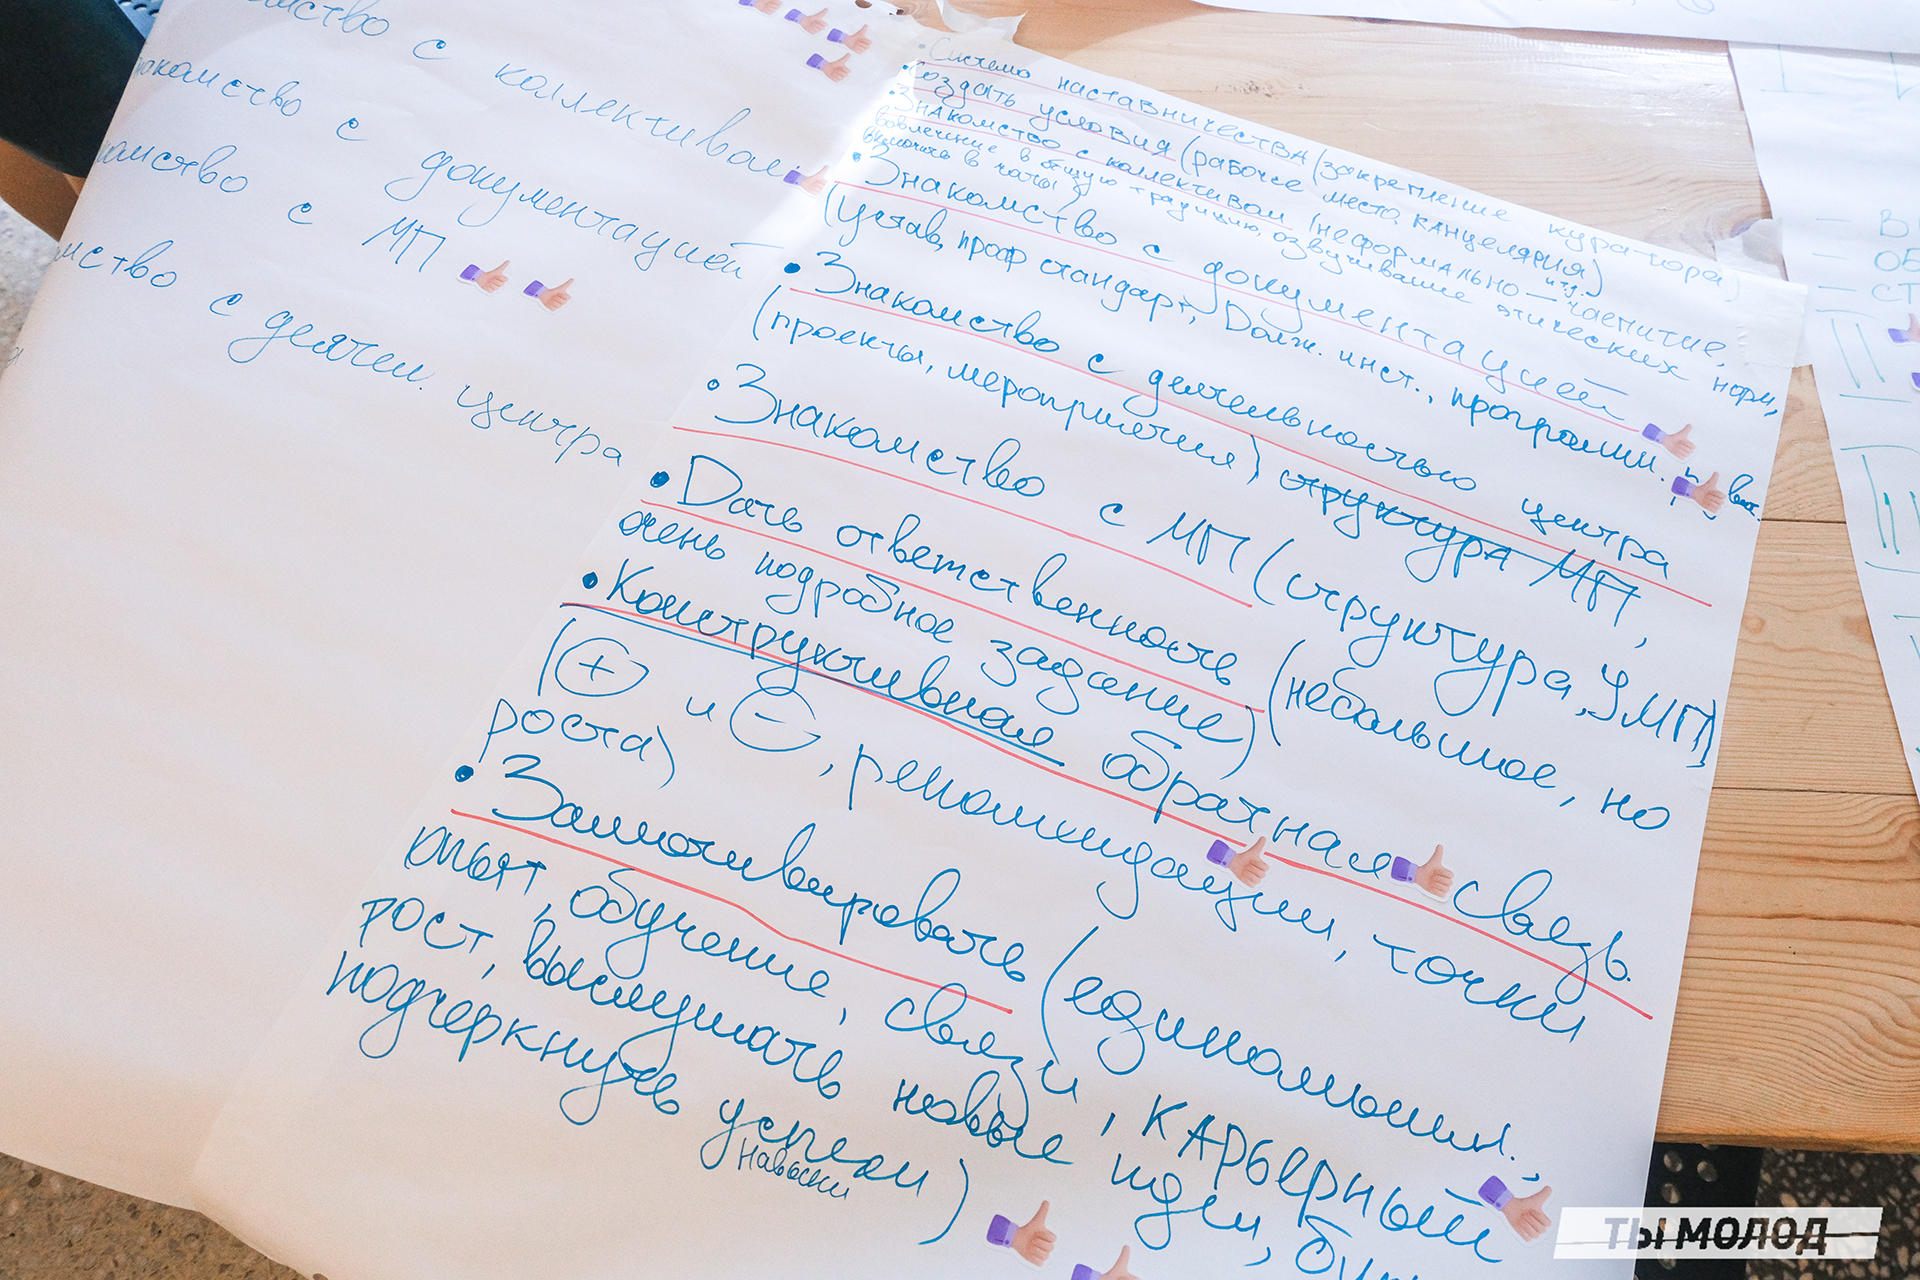 с коллективом
с документацией
с МП
с деятел. центра
• Система наставничества (закрепление куратора)
• Создать условия (рабочее место, канцелярия и т.д.)
• Знакомство с коллективом (неформально – чаепитие,
вовлечение в общую традицию, озвучивание этических норм,
включить в чаты)
• Знакомство с документацией
(Устав, проф стандарт, Долж. инст., программ.
• Знакомство с деятельностью центра
(проекты, мероприятия) структура МП,
• Знакомство с МП (структура, УМП)
• Дать ответственность (небольшое, но
очень подробное задание)
• Конструктивная обратная связь.
(+ и -, рекомендации, точки
роста)
• Замотивировать (единомышл.,
опыт, обучение, связи, карьерный
рост, выслушать новые идеи,
подчеркнуть успехи)
навыки
ТЫ МОЛОД